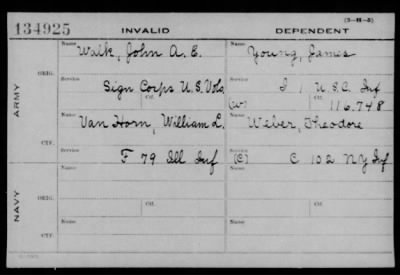 134925 INVALID DEPENDENT (3-H-5)
ARMY
ORIG.
Name Walk, John A. E. Name Young, James
Service Sign Corps U.S. Vols Service I 1 U.S.C. Inf
Ctf. (W) Ctf. 116.748
CTF.
Name Van Horn, William L. Name Weber, Theodore
Service F 79 Ill Inf Service (C) C 102 NY Inf
NAVY
ORIG.
Name Name
Service Ctf. Service Ctf.
CTF.
Name Name
Service Service